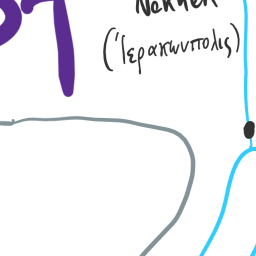 Nekhen
(Ἱερακωνπολις)